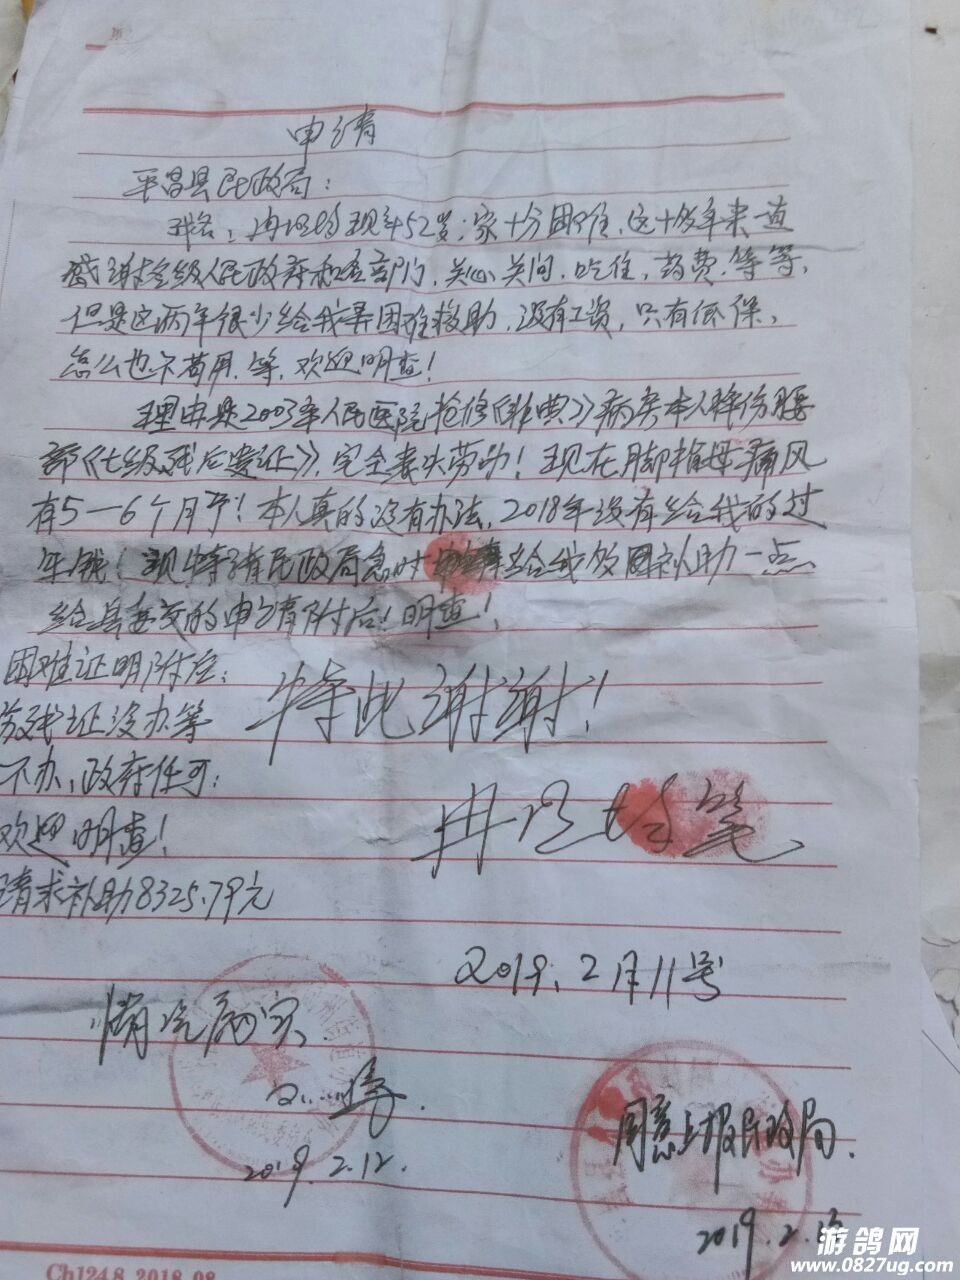 申请
平昌县民政局：
现年52岁，家十分困难，这十多年来一直
感谢各级人民政府和各部门，关心关问，吃住，药费，等等，
但是这两年很少给我弄困难救助，没有工资，只有低保，
怎么也不够用，等，欢迎明查！
理由是2003年人民医院抢修《非典》病房本人摔伤腰
部《七级残后遗证》，完全丧失劳动！现在脚拇母痛风
有5—6个月予！本人真的没有办法，2018年没有给我的过
年钱！现特请民政局急时 给我 困补助一点
给县委交的申请附后！明查！
困难证明附后；
残证没办等
不办，政府任可；
欢迎明查！
请求补助8325.79元
特此谢谢！
冉 笔
2019.2月11号
情况属实
2019.2.12.
同意上报民政局.
2019.2.
Ch1248 2018.08
游鸽网
www.0827ug.com